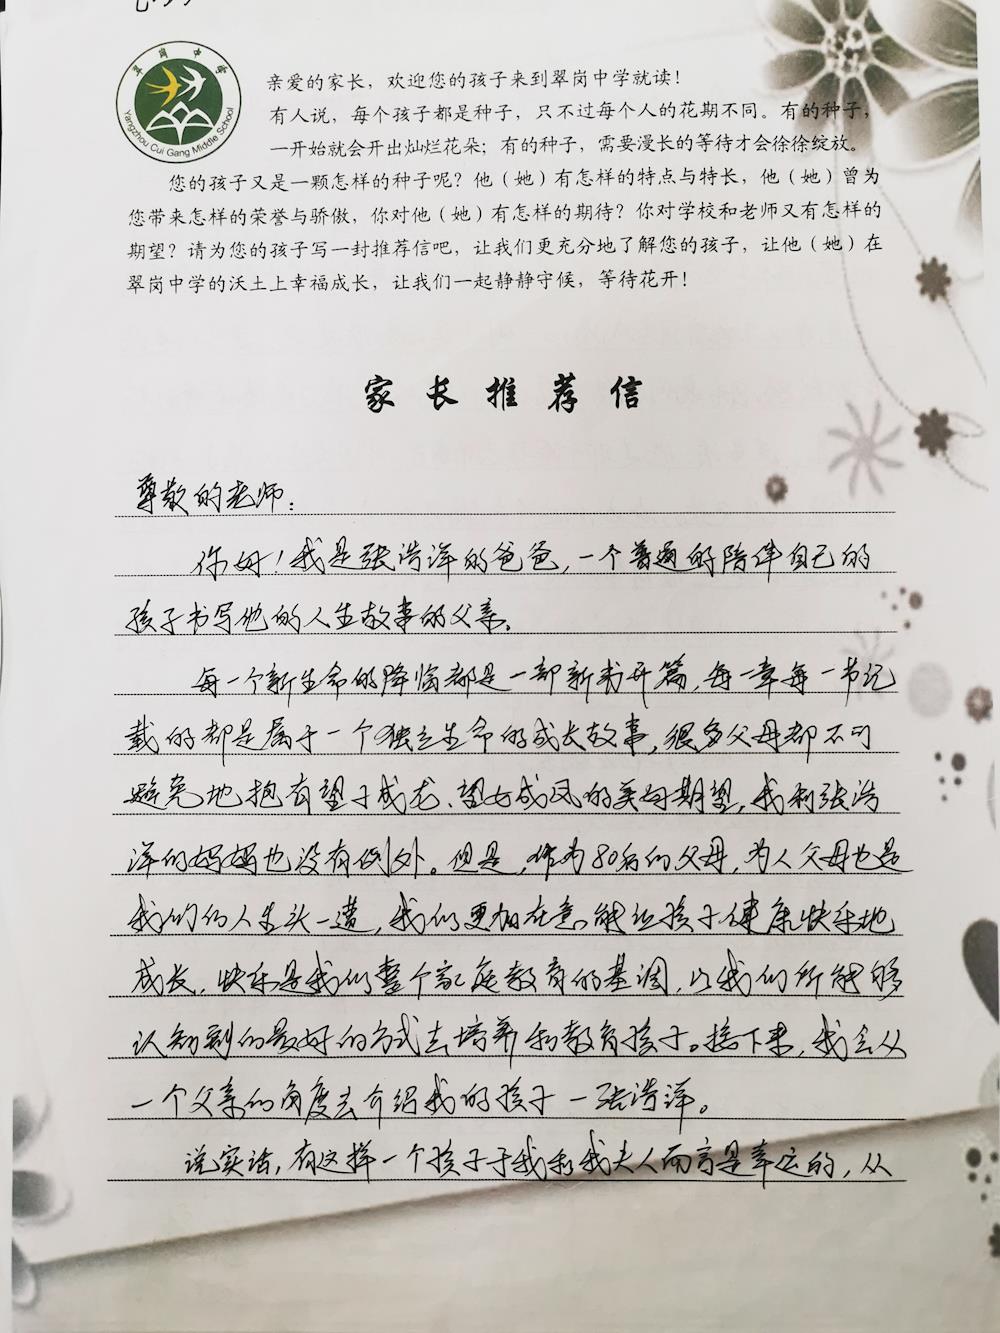 翠岗中学
Yangzhou Cui Gang Middle School
亲爱的家长，欢迎您的孩子来到翠岗中学就读！
有人说，每个孩子都是种子，只不过每个人的花期不同。有的种子，
一开始就会开出灿烂花朵；有的种子，需要漫长的等待才会徐徐绽放。
您的孩子又是一颗怎样的种子呢？他（她）有怎样的特点与特长，他（她）曾为
您带来怎样的荣誉与骄傲，你对他（她）有怎样的期待？你对学校和老师又有怎样的
期望？请为您的孩子写一封推荐信吧，让我们更充分地了解您的孩子，让他（她）在
翠岗中学的沃土上幸福成长，让我们一起静静守候，等待花开！
家长推荐信
尊敬的老师：
你好！我是张浩洋的爸爸，一个普通的陪伴自己的
孩子书写他的人生故事的父亲。
每一个新生命的降临都是一部新书开篇，每一章每一节记
载的都是属于一个独立生命的成长故事，很多父母都不可
避免地抱有望子成龙、望女成凤的美好期望，我和张浩
洋的妈妈也没有例外。但是，作为80后的父母，为人父母也是
我们的人生头一遭，我们更加在意能让孩子健康快乐地
成长，快乐是我们整个家庭教育的基调，以我们所能够
认知到的最好的方式去培养和教育孩子。接下来，我会从
一个父亲的角度去介绍我的孩子—张浩洋。
说实话，有这样一个孩子于我和我夫人而言是幸运的，从